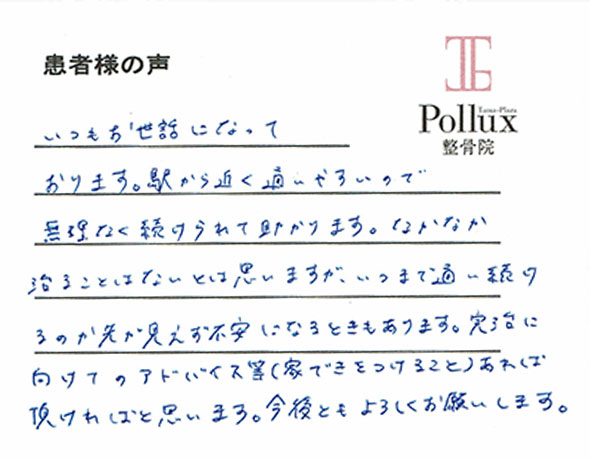 患者様の声
Tama-Plaza
Pollux
整骨院
いつもお世話になって
おります。駅から近く通いやすいので
無理なく続けられて助かります。なかなか
治ることはないとは思いますが、いつまで通い続け
るのか先が見えず不安になるときもあります。完治に
向けてのアドバイス等(家でできをつけること)あれば
頂ければと思います。今後ともよろしくお願いします。